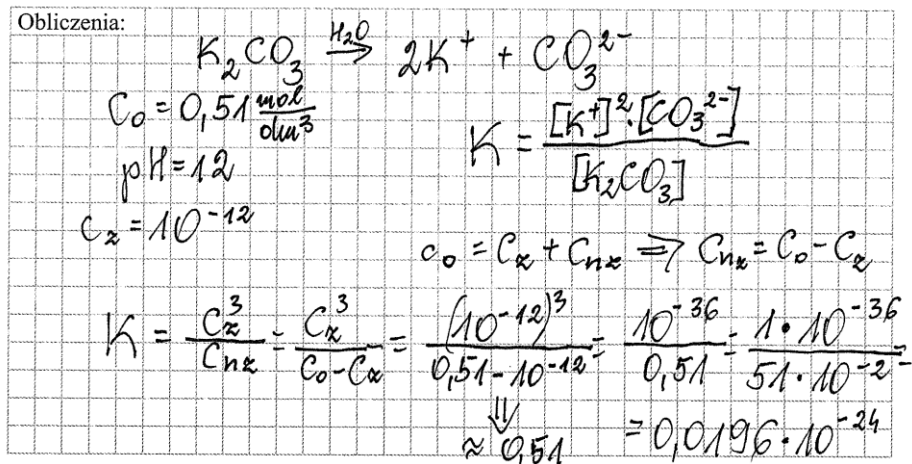 Obliczenia:
K₂CO₃ —H₂O→ 2K⁺ + CO₃²⁻
C₀ = 0,51 mol/dm³
K = [K⁺]²·[CO₃²⁻] / [K₂CO₃]
pH = 12
C_z = 10⁻¹²
C₀ = C_z + C_nz ⟹ C_nz = C₀ - C_z
K = C_z³ / C_nz = C_z³ / (C₀ - C_z) = (10⁻¹²)³ / (0,51 - 10⁻¹²) = 10⁻³⁶ / 0,51 = 1·10⁻³⁶ / 51·10⁻² =
⇓
≈ 0,51 = 0,0196·10⁻²⁴